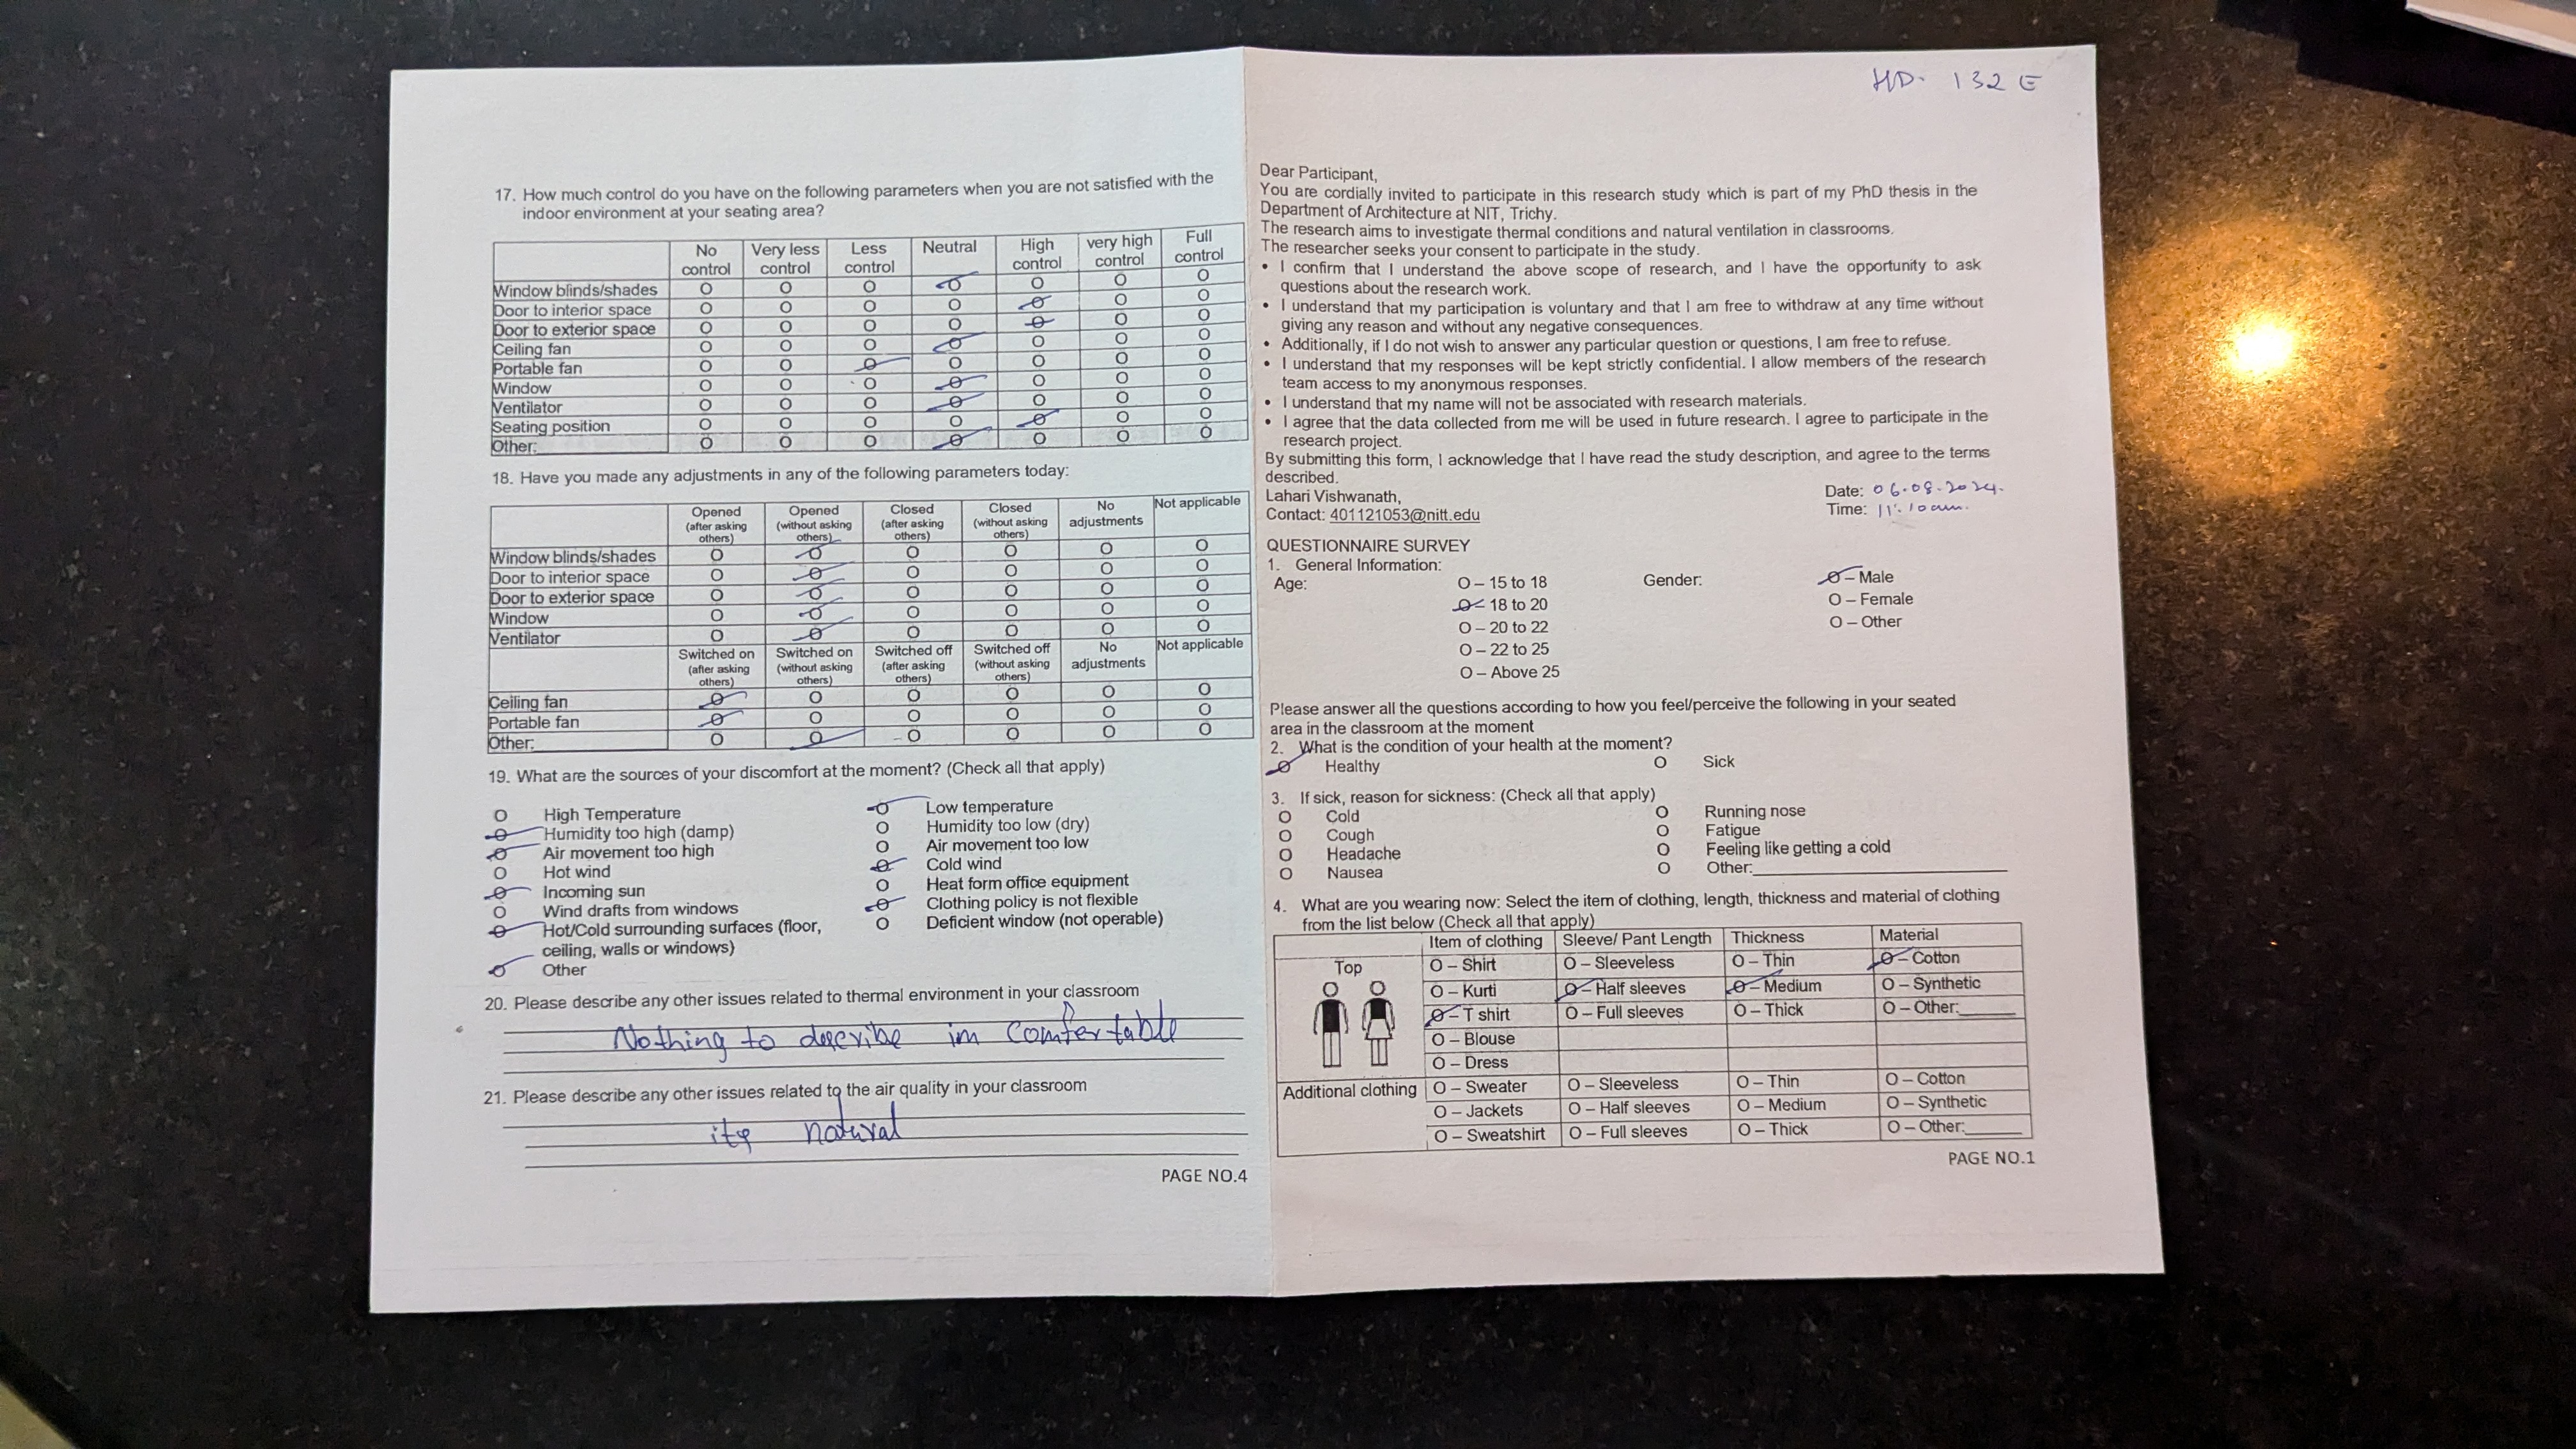 17. How much control do you have on the following parameters when you are not satisfied with the
indoor environment at your seating area?
No control Very less control Less control Neutral High control very high control Full control
Window blinds/shades O O O O O O O
Door to interior space O O O O O O O
Door to exterior space O O O O O O O
Ceiling fan O O O O O O O
Portable fan O O O O O O O
Window O O O O O O O
Ventilator O O O O O O O
Seating position O O O O O O O
Other: O O O O O O O
18. Have you made any adjustments in any of the following parameters today:
Opened (after asking others) Opened (without asking others) Closed (after asking others) Closed (without asking others) No adjustments Not applicable
Window blinds/shades O O O O O O
Door to interior space O O O O O O
Door to exterior space O O O O O O
Window O O O O O O
Ventilator O O O O O O
Switched on (after asking others) Switched on (without asking others) Switched off (after asking others) Switched off (without asking others) No adjustments Not applicable
Ceiling fan O O O O O O
Portable fan O O O O O O
Other: O O O O O O
19. What are the sources of your discomfort at the moment? (Check all that apply)
O High Temperature O Low temperature
O Humidity too high (damp) O Humidity too low (dry)
O Air movement too high O Air movement too low
O Hot wind O Cold wind
O Incoming sun O Heat form office equipment
O Wind drafts from windows O Clothing policy is not flexible
O Hot/Cold surrounding surfaces (floor, O Deficient window (not operable)
ceiling, walls or windows)
O Other
20. Please describe any other issues related to thermal environment in your classroom
Nothing to describe im comfertable
21. Please describe any other issues related to the air quality in your classroom
its natural
PAGE NO.4
HD. 132 E
Dear Participant,
You are cordially invited to participate in this research study which is part of my PhD thesis in the
Department of Architecture at NIT, Trichy.
The research aims to investigate thermal conditions and natural ventilation in classrooms.
The researcher seeks your consent to participate in the study.
• I confirm that I understand the above scope of research, and I have the opportunity to ask
questions about the research work.
• I understand that my participation is voluntary and that I am free to withdraw at any time without
giving any reason and without any negative consequences.
• Additionally, if I do not wish to answer any particular question or questions, I am free to refuse.
• I understand that my responses will be kept strictly confidential. I allow members of the research
team access to my anonymous responses.
• I understand that my name will not be associated with research materials.
• I agree that the data collected from me will be used in future research. I agree to participate in the
research project.
By submitting this form, I acknowledge that I have read the study description, and agree to the terms
described.
Lahari Vishwanath, Date: 06.08.2024.
Contact: 401121053@nitt.edu Time: 11:10am.
QUESTIONNAIRE SURVEY
1. General Information:
Age: O – 15 to 18 Gender: O – Male
O – 18 to 20 O – Female
O – 20 to 22 O – Other
O – 22 to 25
O – Above 25
Please answer all the questions according to how you feel/perceive the following in your seated
area in the classroom at the moment
2. What is the condition of your health at the moment?
O Healthy O Sick
3. If sick, reason for sickness: (Check all that apply)
O Cold O Running nose
O Cough O Fatigue
O Headache O Feeling like getting a cold
O Nausea O Other:
4. What are you wearing now: Select the item of clothing, length, thickness and material of clothing
from the list below (Check all that apply)
Item of clothing Sleeve/ Pant Length Thickness Material
Top O – Shirt O – Sleeveless O – Thin O – Cotton
O – Kurti O – Half sleeves O – Medium O – Synthetic
O – T shirt O – Full sleeves O – Thick O – Other:
O – Blouse
O – Dress
Additional clothing O – Sweater O – Sleeveless O – Thin O – Cotton
O – Jackets O – Half sleeves O – Medium O – Synthetic
O – Sweatshirt O – Full sleeves O – Thick O – Other:
PAGE NO.1